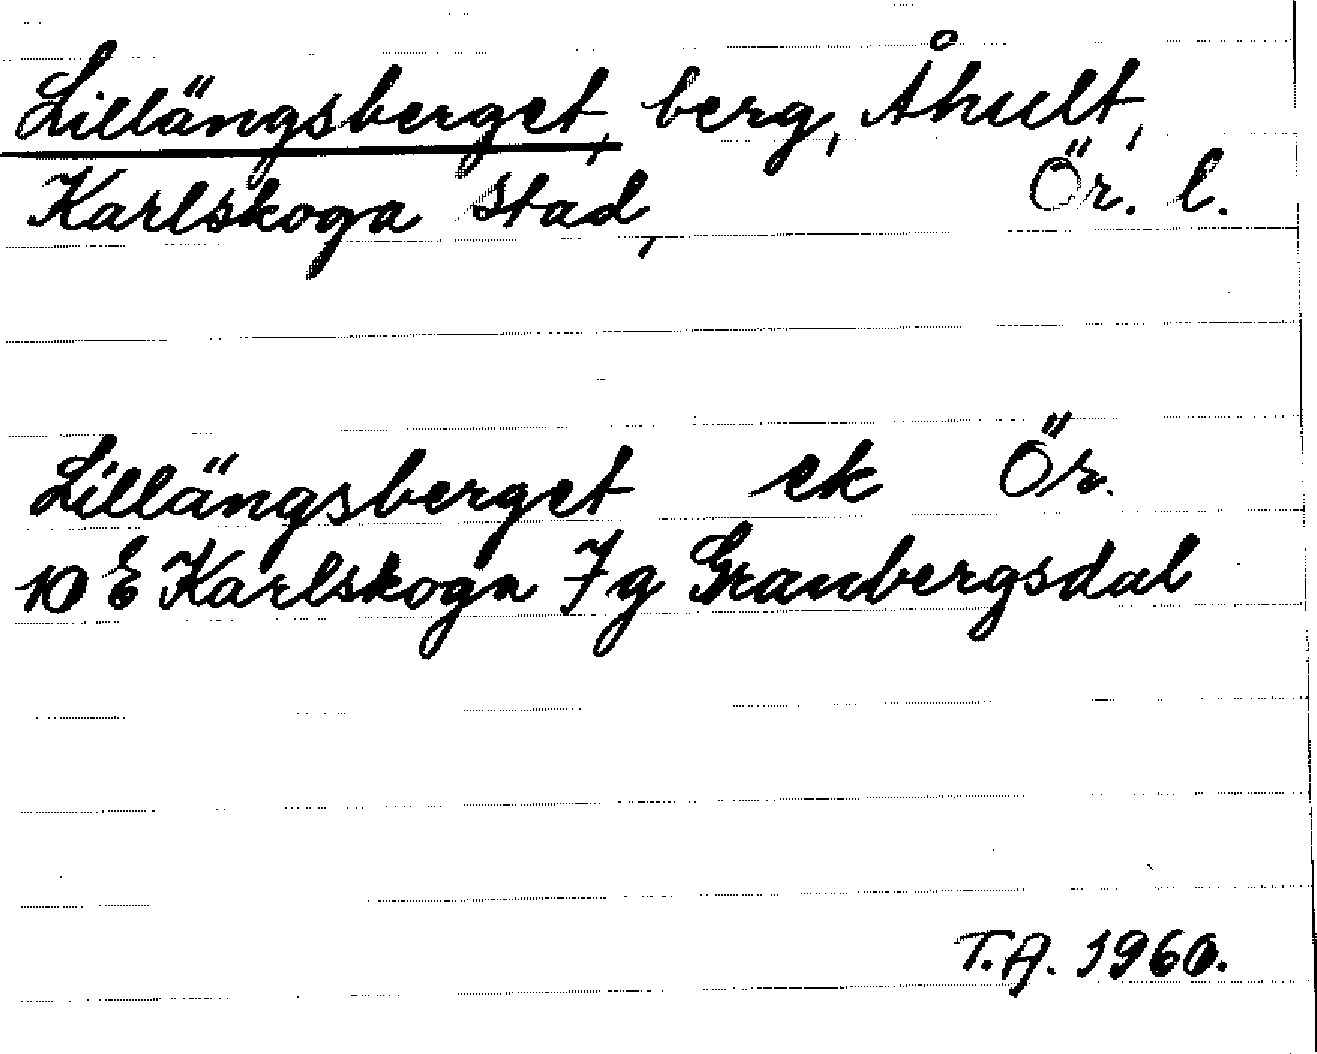 Lillängsberget, berg, Åhult,
Karlskoga stad, Ör. l.
Lillängsberget ek Ör.
10 E Karlskoga 7 g Granbergsdal
T.A. 1960.